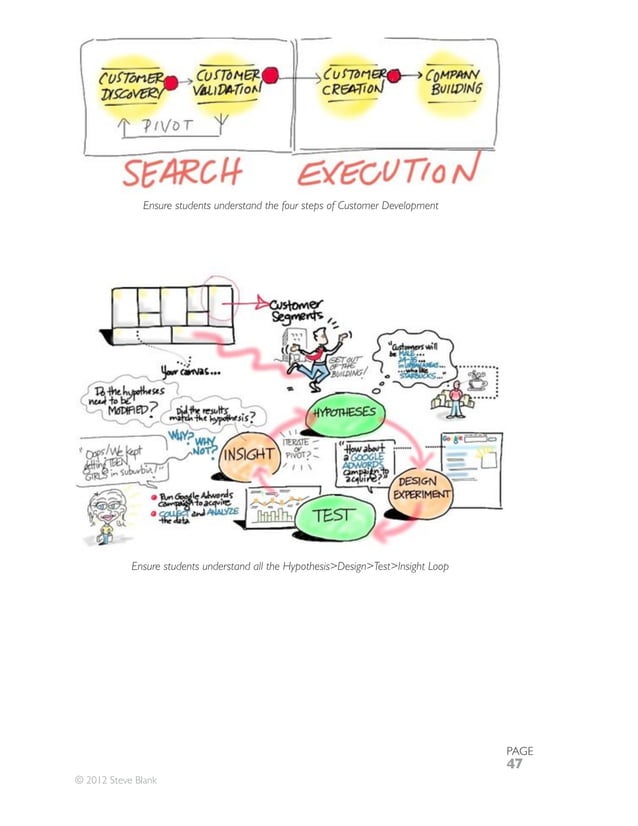 CUSTOMER
DISCOVERY
CUSTOMER
VALIDATION
CUSTOMER
CREATION
COMPANY
BUILDING
PIVOT
SEARCH
EXECUTION
Ensure students understand the four steps of Customer Development
Customer
Segments
Your canvas...
GET OUT
OF THE
BUILDING!
"Customers will
be MALE...
24-35...
in URBAN AREAS...
...who like
STARBUCKS..."
Do the hypotheses
need to be
MODIFIED?
Did the results
match the hypothesis?
WHY?
WHY
NOT?
HYPOTHESES
INSIGHT
ITERATE
or
PIVOT?
"How about
a GOOGLE
ADWORDS
campaign to
acquire?"
Google
DESIGN
EXPERIMENT
TEST
"Oops! We kept
getting TEEN
GIRLS in suburbia!"
Run Google Adwords
campaign to acquire
COLLECT and ANALYZE
the data
Ensure students understand all the Hypothesis>Design>Test>Insight Loop
PAGE
47
© 2012 Steve Blank